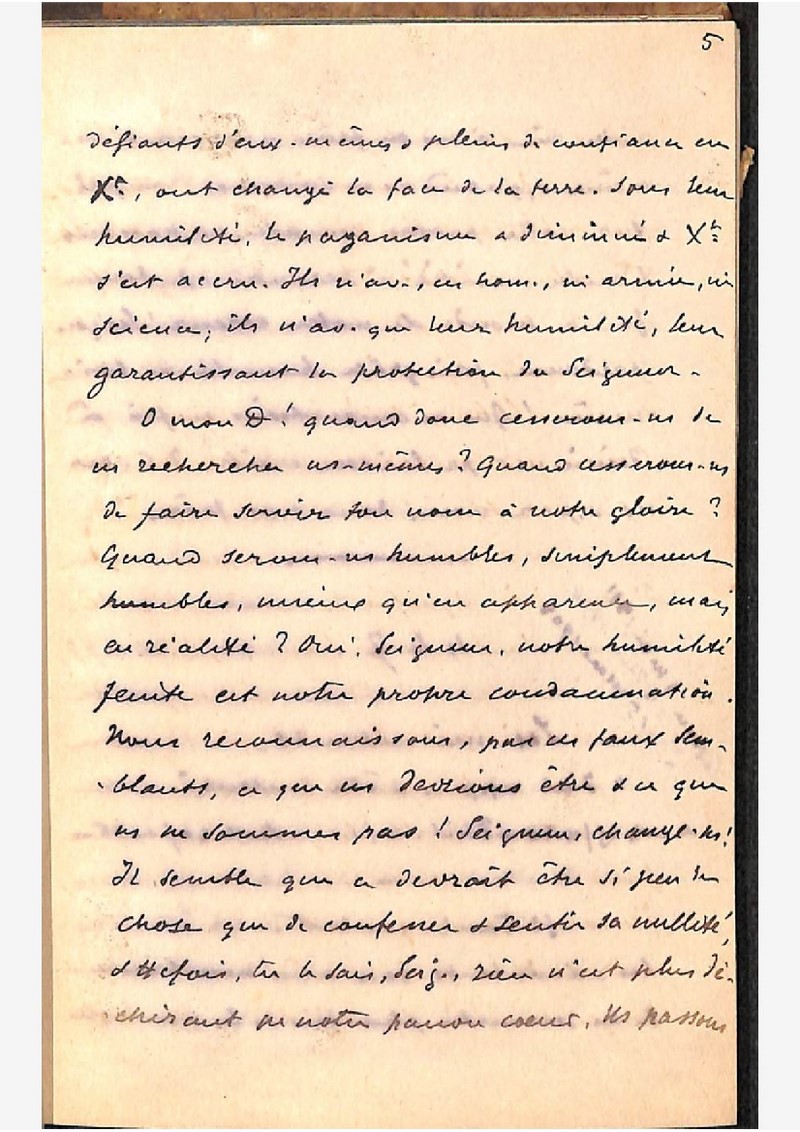 5
défiants d'eux-mêmes & pleins de confiance en
Xt, ont changé la face de la terre. Sous leur
humilité, le paganisme a diminué & Xt
s'est accru. Ils n'av., en hom., ni armée, ni
science; ils n'av. que leur humilité, leur
garantissant la protection du Seigneur.
O mon D! quand donc cesserons-ns de
ns rechercher ns-mêmes? Quand cesserons-ns
de faire servir ton nom à notre gloire?
Quand serons-ns humbles, simplement
humbles, mieux qu'en apparence, mais
en réalité? Oui, Seigneur, notre humilité
feinte est notre propre condamnation.
Nous reconnaissons, par ces faux sem-
blants, ce que ns devrions être & ce que
ns ne sommes pas! Seigneur, change-ns!
Il semble que ce devrait être si peu de
chose que de confesser & sentir sa nullité,
& ttefois, tu le sais, Seig., rien n'est plus dé-
chirant pr notre pauvre coeur. Ns passons